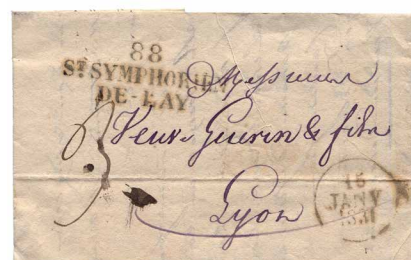 88
ST SYMPHORIEN
DE-LAY
Messieurs
Veuve Guerin & fils
3
Lyon
15
JANV
1831